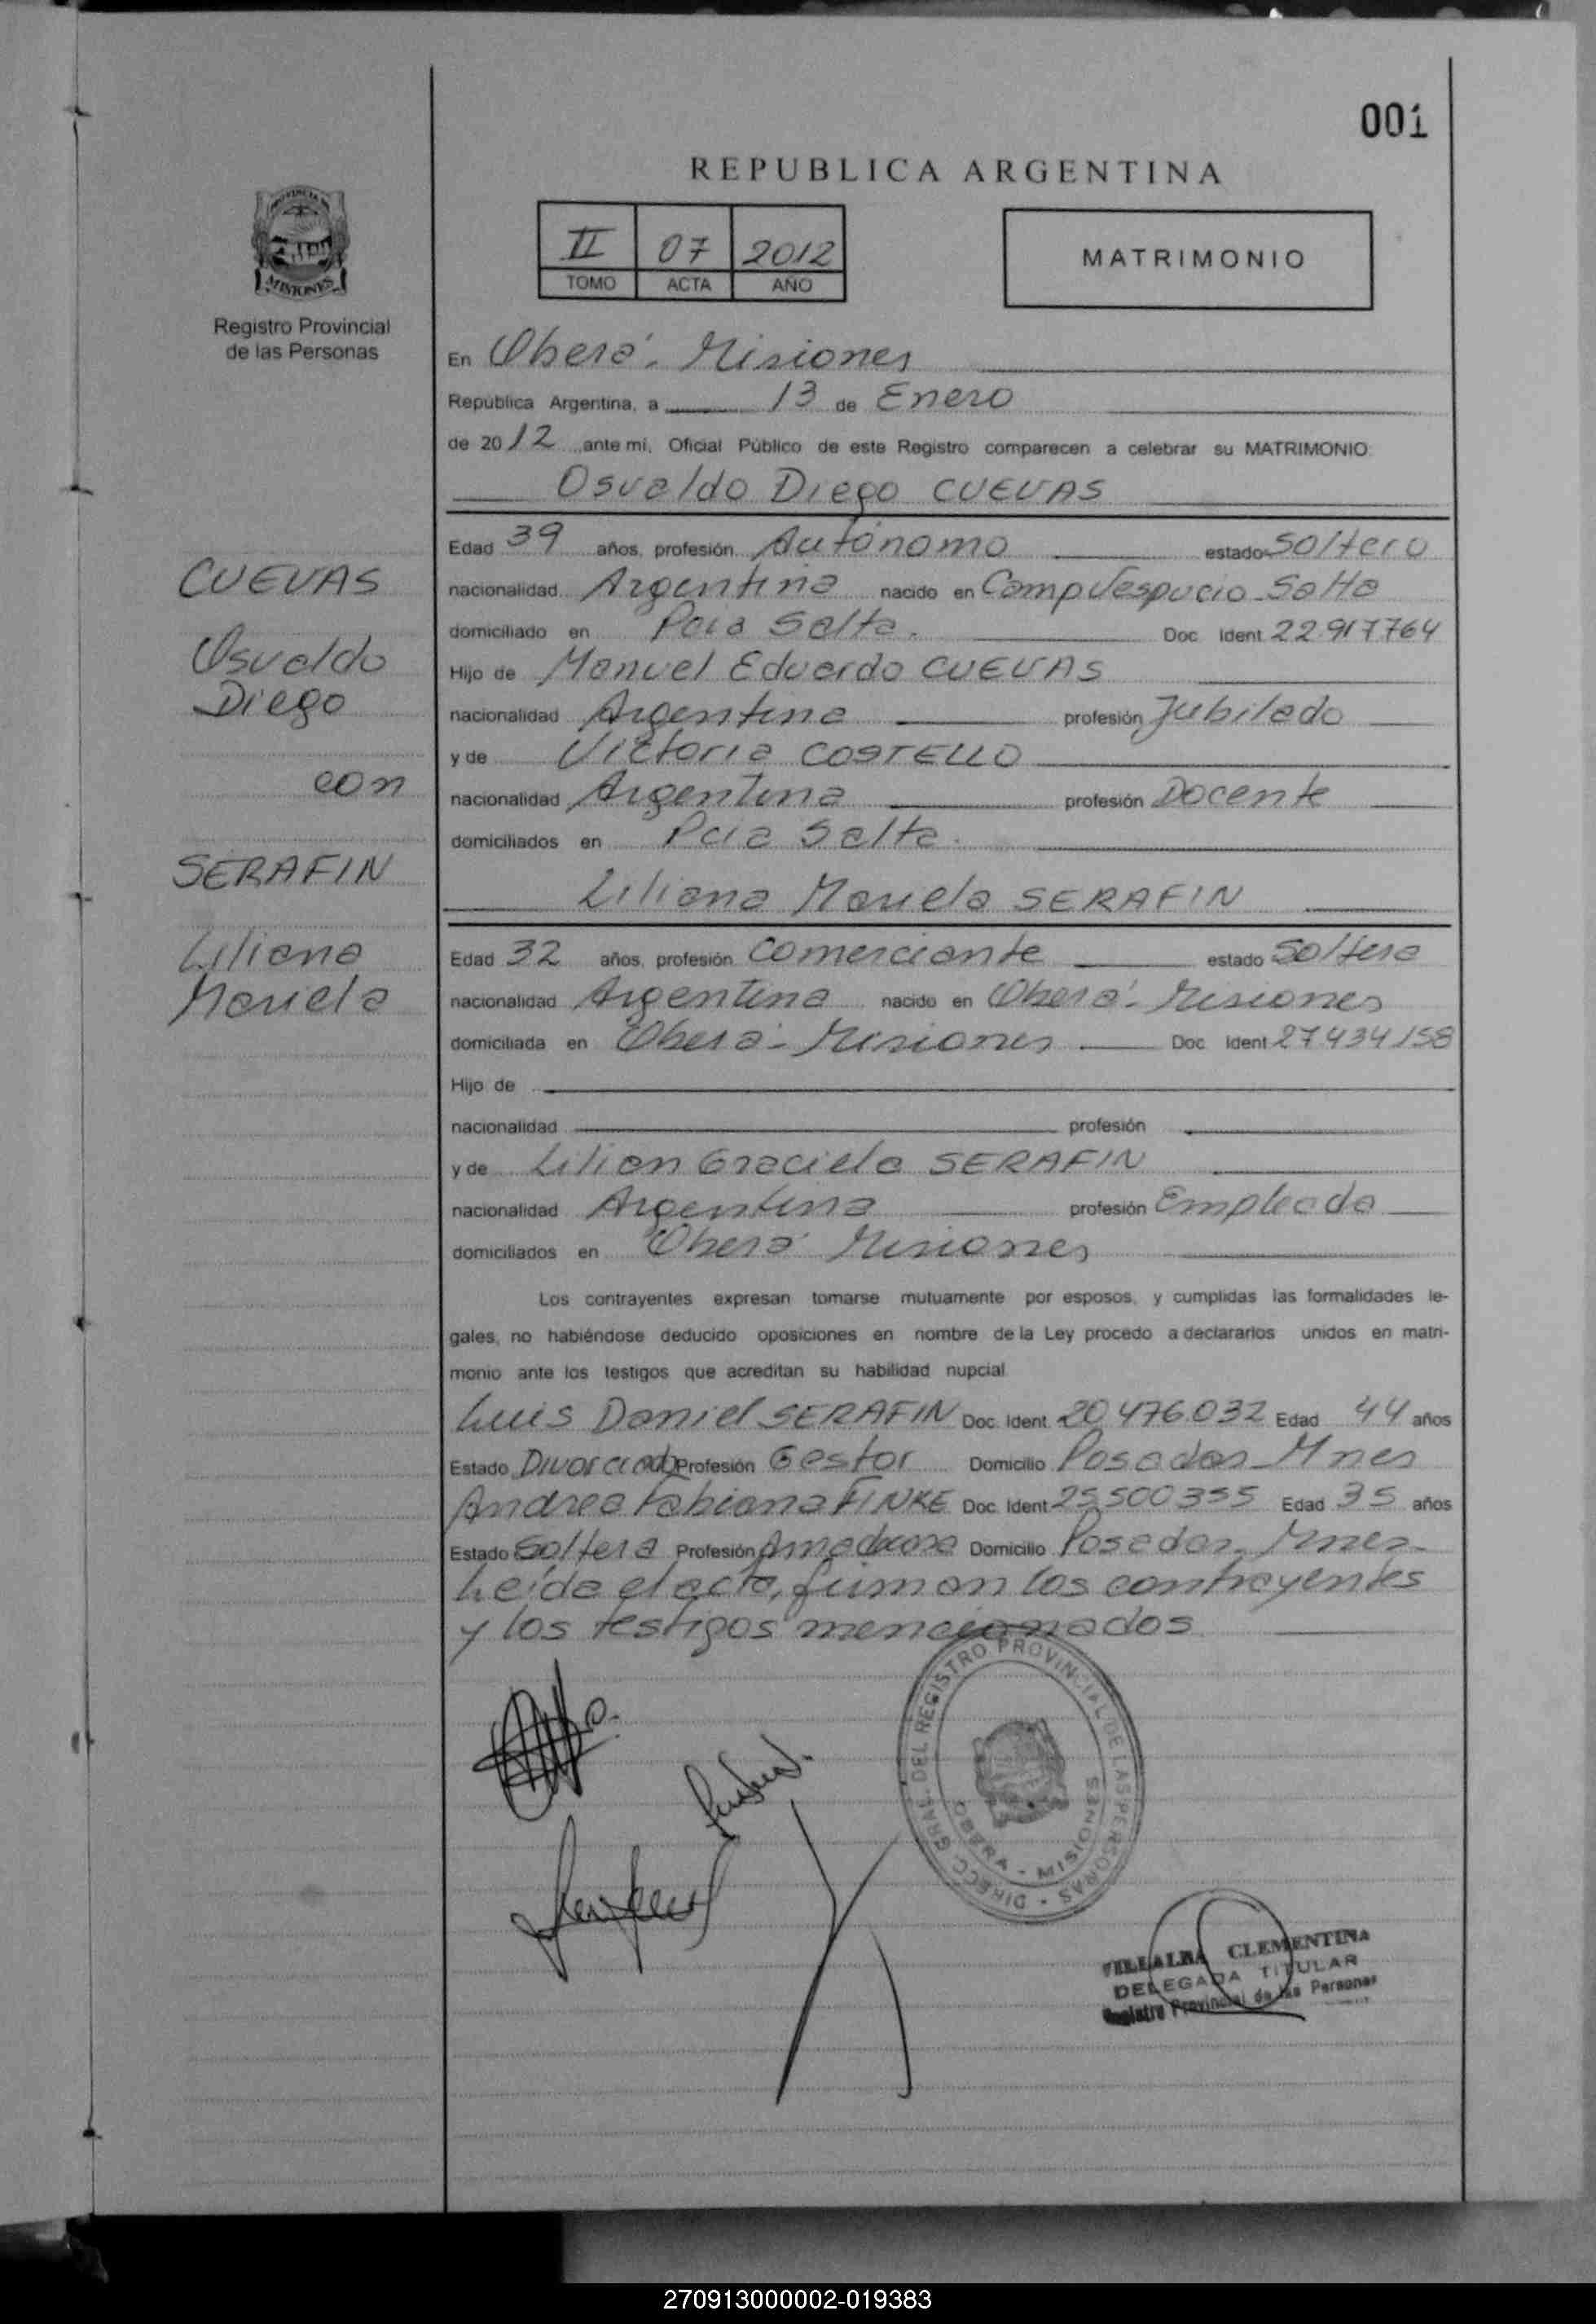 001
REPUBLICA ARGENTINA
II 07 2012
TOMO ACTA AÑO
MATRIMONIO
MISIONES
Registro Provincial
de las Personas
En Oberá - Misiones
República Argentina, a 13 de Enero
de 2012 ante mi, Oficial Público de este Registro comparecen a celebrar su MATRIMONIO:
Osvaldo Diego CUEVAS
Edad 39 años, profesión Autónomo estado Soltero
nacionalidad Argentina nacido en Camp Vespucio Salta
domiciliado en Pcia Salta. Doc. Ident. 22.917764
Hijo de Manuel Eduardo CUEVAS
nacionalidad Argentina profesión Jubilado
y de Victoria COSTELLO
nacionalidad Argentina profesión Docente
domiciliados en Pcia Salta.
Liliana Mariela SERAFIN
Edad 32 años, profesión Comerciante estado Soltera
nacionalidad Argentina nacido en Oberá - Misiones
domiciliada en Oberá - Misiones Doc. Ident. 27434158
Hijo de
nacionalidad profesión
y de Lilian Graciela SERAFIN
nacionalidad Argentina profesión Empleada
domiciliados en Oberá Misiones
Los contrayentes expresan tomarse mutuamente por esposos, y cumplidas las formalidades le-
gales, no habiéndose deducido oposiciones en nombre de la Ley procedo a declararlos unidos en matri-
monio ante los testigos que acreditan su habilidad nupcial
Luis Daniel SERAFIN Doc. Ident. 20.476.032 Edad 44 años
Estado Divorciado Profesión Gestor Domicilio Posadas Mnes
Andrea Fabiana FINKE Doc. Ident. 25.500355 Edad 35 años
Estado Soltera Profesión Domicilio Posadas Mnes.
Leída el acta, firman los contrayentes
y los testigos mencionados
CUEVAS
Osvaldo
Diego
con
SERAFIN
Liliana
Mariela
DIRECC. GRAL. DEL REGISTRO PROVINCIAL DE LAS PERSONAS
OBERA - MISIONES
VILLALBA CLEMENTINA
DELEGADA TITULAR
Registro Provincial de las Personas
270913000002-019383